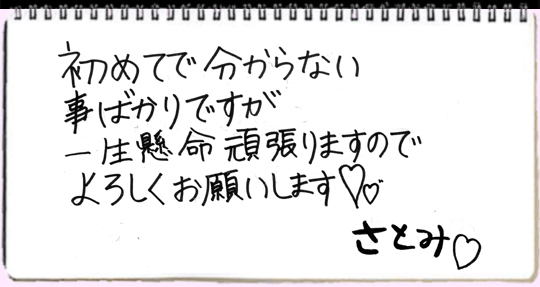 初めてで分からない
事ばかりですが
一生懸命頑張りますので
よろしくお願いします♡♡
さとみ♡